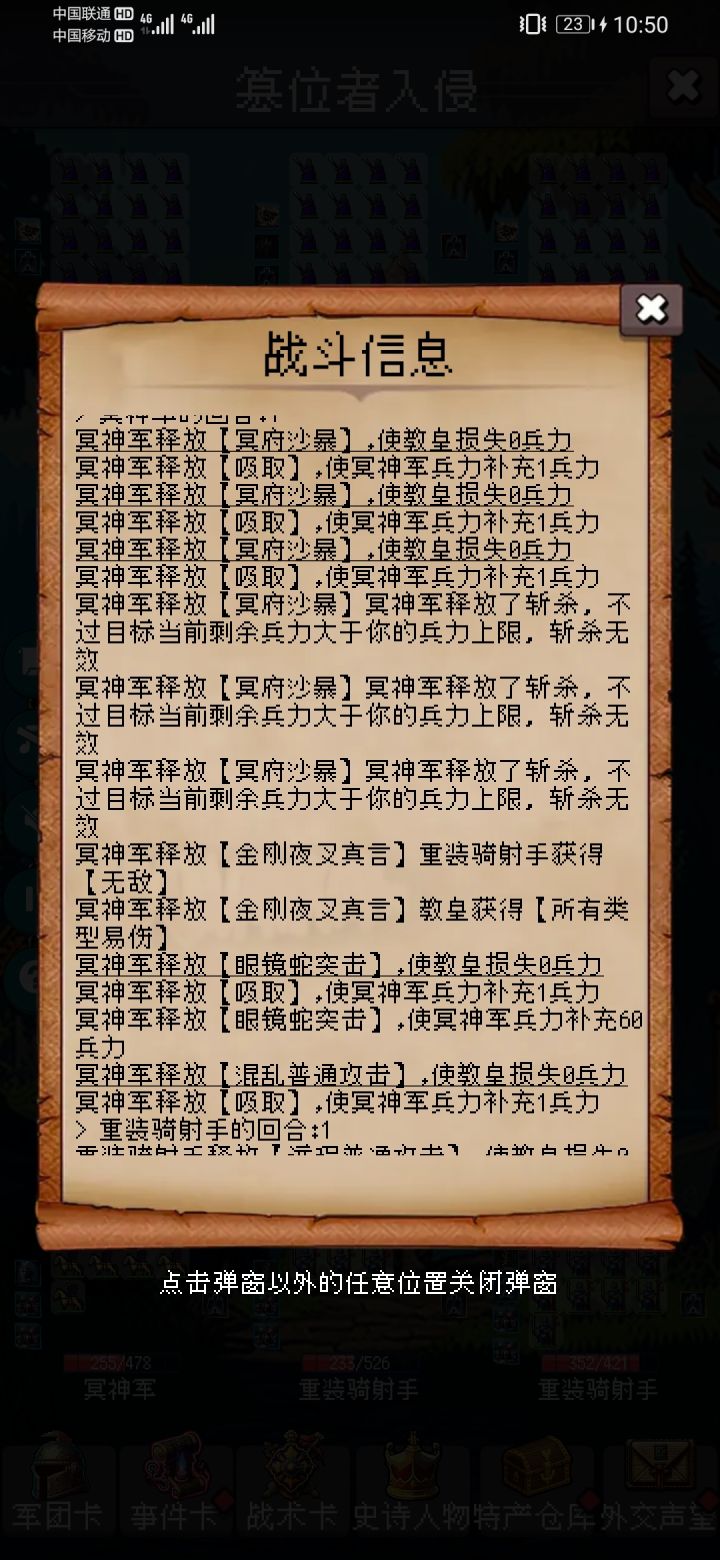 中国联通 HD 4G 4G 23 10:50
中国移动 HD
篡位者入侵
战斗信息
冥神军释放【冥府沙暴】,使教皇损失0兵力
冥神军释放【吸取】,使冥神军兵力补充1兵力
冥神军释放【冥府沙暴】,使教皇损失0兵力
冥神军释放【吸取】,使冥神军兵力补充1兵力
冥神军释放【冥府沙暴】,使教皇损失0兵力
冥神军释放【吸取】,使冥神军兵力补充1兵力
冥神军释放【冥府沙暴】冥神军释放了斩杀，不
过目标当前剩余兵力大于你的兵力上限，斩杀无
效
冥神军释放【冥府沙暴】冥神军释放了斩杀，不
过目标当前剩余兵力大于你的兵力上限，斩杀无
效
冥神军释放【冥府沙暴】冥神军释放了斩杀，不
过目标当前剩余兵力大于你的兵力上限，斩杀无
效
冥神军释放【金刚夜叉真言】重装骑射手获得
【无敌】
冥神军释放【金刚夜叉真言】教皇获得【所有类
型易伤】
冥神军释放【眼镜蛇突击】,使教皇损失0兵力
冥神军释放【吸取】,使冥神军兵力补充1兵力
冥神军释放【眼镜蛇突击】,使冥神军兵力补充60
兵力
冥神军释放【混乱普通攻击】,使教皇损失0兵力
冥神军释放【吸取】,使冥神军兵力补充1兵力
> 重装骑射手的回合:1
点击弹窗以外的任意位置关闭弹窗
255/478 233/526 352/421
冥神军 重装骑射手 重装骑射手
军团卡 事件卡 战术卡 史诗人物 特产仓库 外交声望